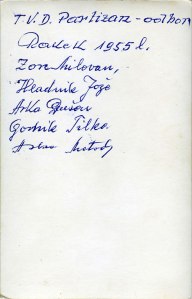 T.V.D. Partizan - odbor
Rakek 1955 l.
Zore Milovan,
Hladnik Jože
Arko Dušan
Gornik Tilka
Metod